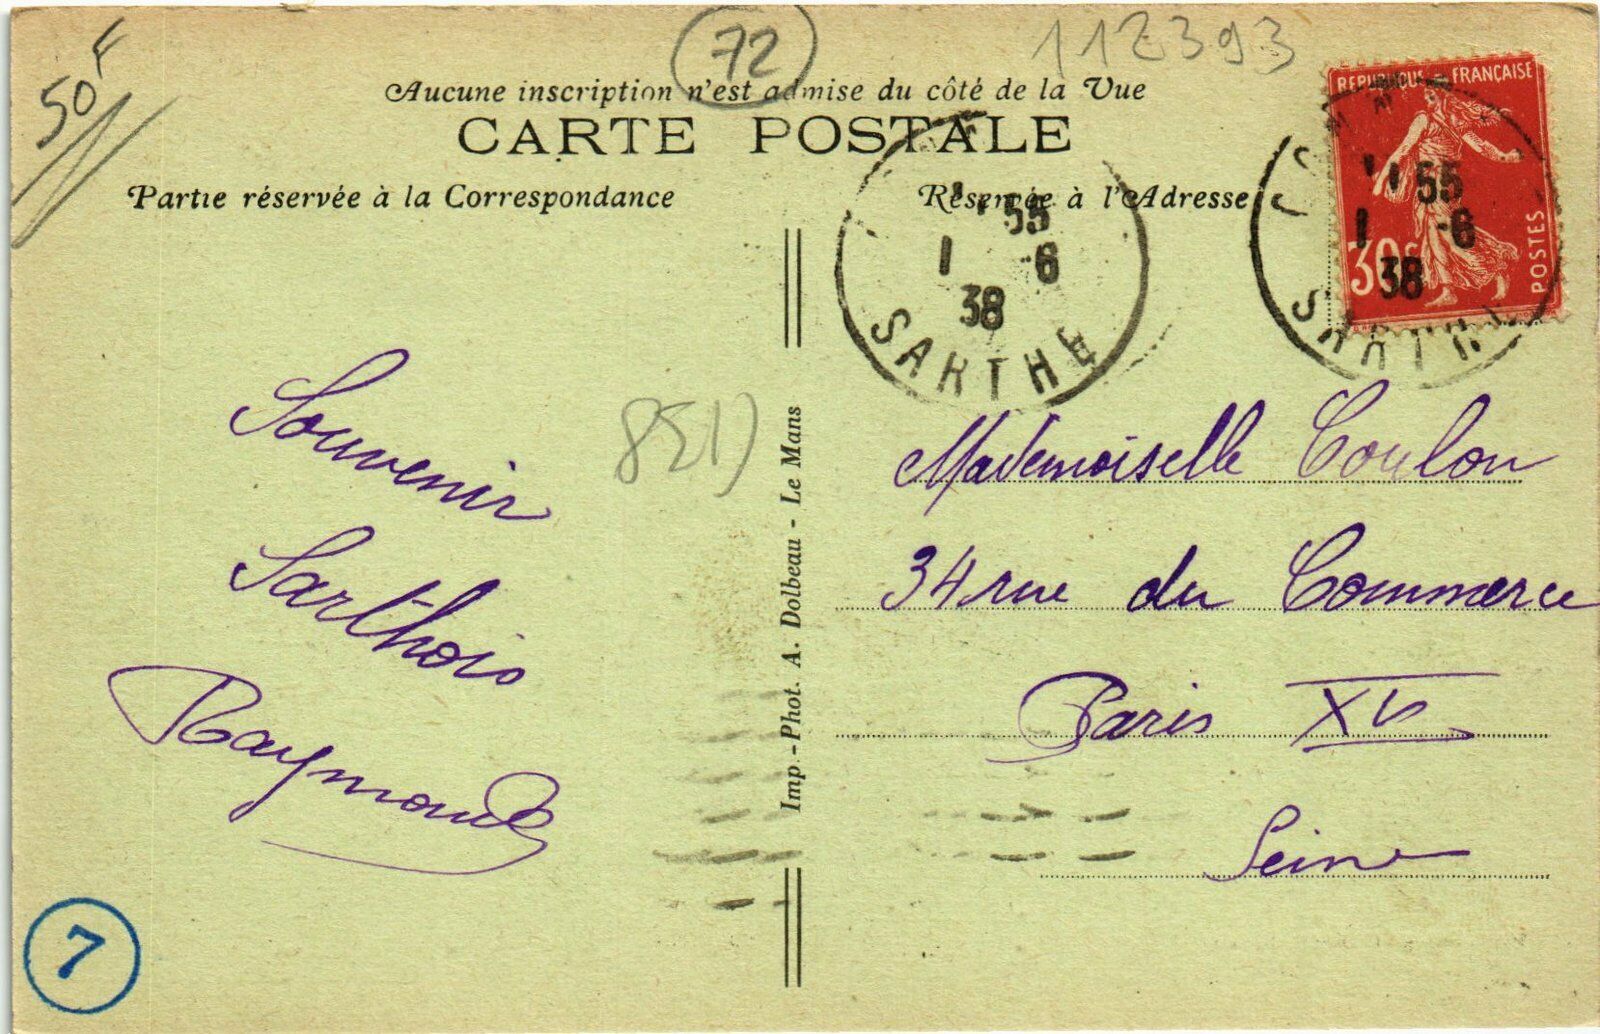 50F
72
112393
Aucune inscription n'est admise du côté de la Vue
CARTE POSTALE
Partie réservée à la Correspondance
Réservée à l'Adresse
REPUBLIQUE FRANÇAISE
30c
POSTES
55
1 -6
38
SARTHE
55
1 -6
38
Souvenir
Sarthois
Raymond
Imp.-Phot. A. Dolbeau - Le Mans
Mademoiselle Coulon
34 rue du Commerce
Paris XV
Seine
7